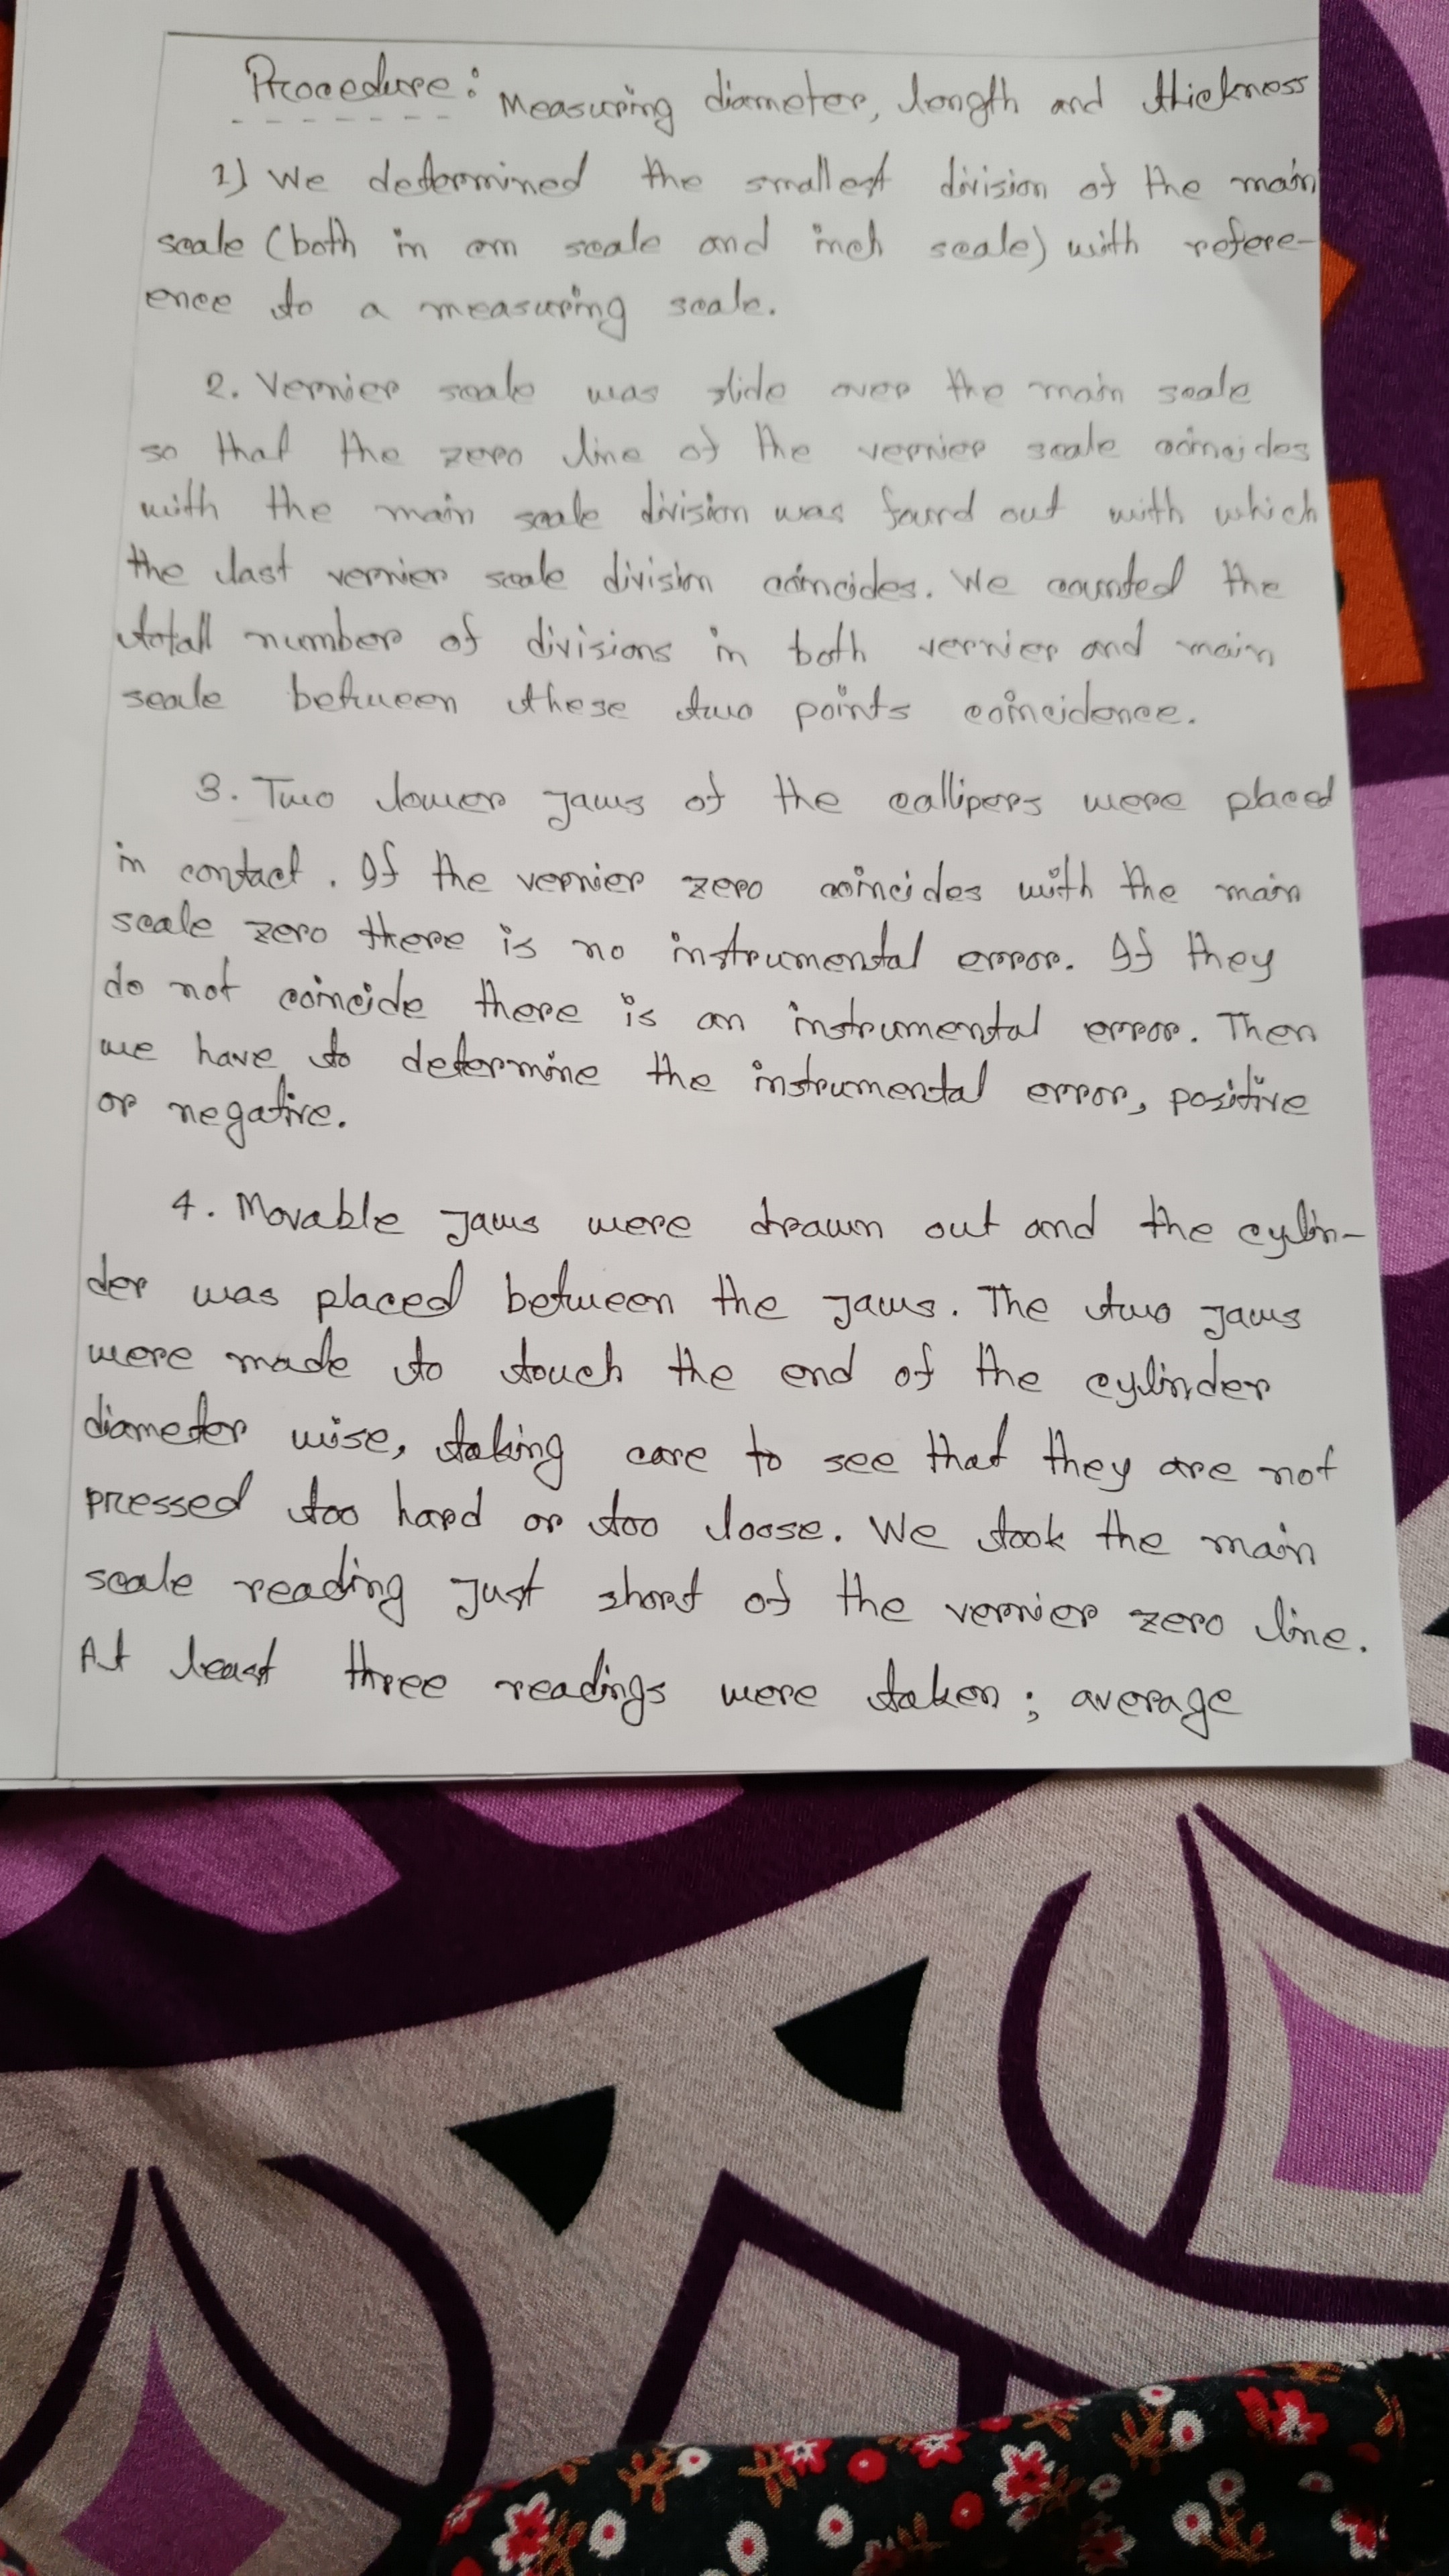 Procedure: Measuring diameter, length and thickness
1) We determined the smallest division of the main
scale (both in cm scale and inch scale) with refere-
ence to a measuring scale.
2. Vernier scale was slide over the main scale
so that the zero line of the vernier scale coincides
with the main scale division was found out with which
the last vernier scale division coincides. We counted the
totall number of divisions in both vernier and main
scale between these two points coincidence.
3. Two lower jaws of the callipers were placed
in contact. If the vernier zero coincides with the main
scale zero there is no instrumental error. If they
do not coincide there is an instrumental error. Then
we have to determine the instrumental error, positive
or negative.
4. Movable jaws were drawn out and the cylin-
der was placed between the jaws. The two jaws
were made to touch the end of the cylinder
diameter wise, taking care to see that they are not
pressed too hard or too loose. We took the main
scale reading just short of the vernier zero line.
At least three readings were taken; average